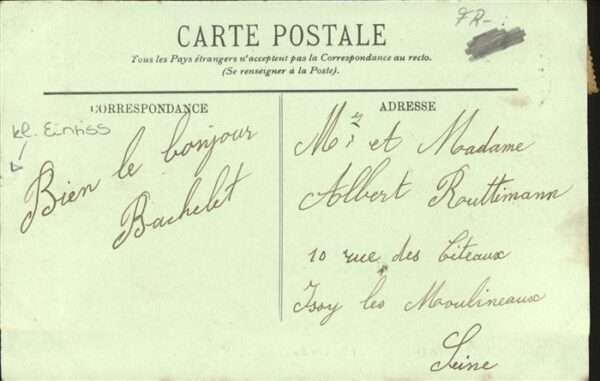 FR-
CARTE POSTALE
Tous les Pays étrangers n'acceptent pas la Correspondance au recto.
(Se renseigner à la Poste).
CORRESPONDANCE
kl. Einriss
Bien le bonjour
Bachelet
ADRESSE
Mr et Madame
Albert Routtimann
10 rue des Citeaux
Issy les Moulineaux
Seine